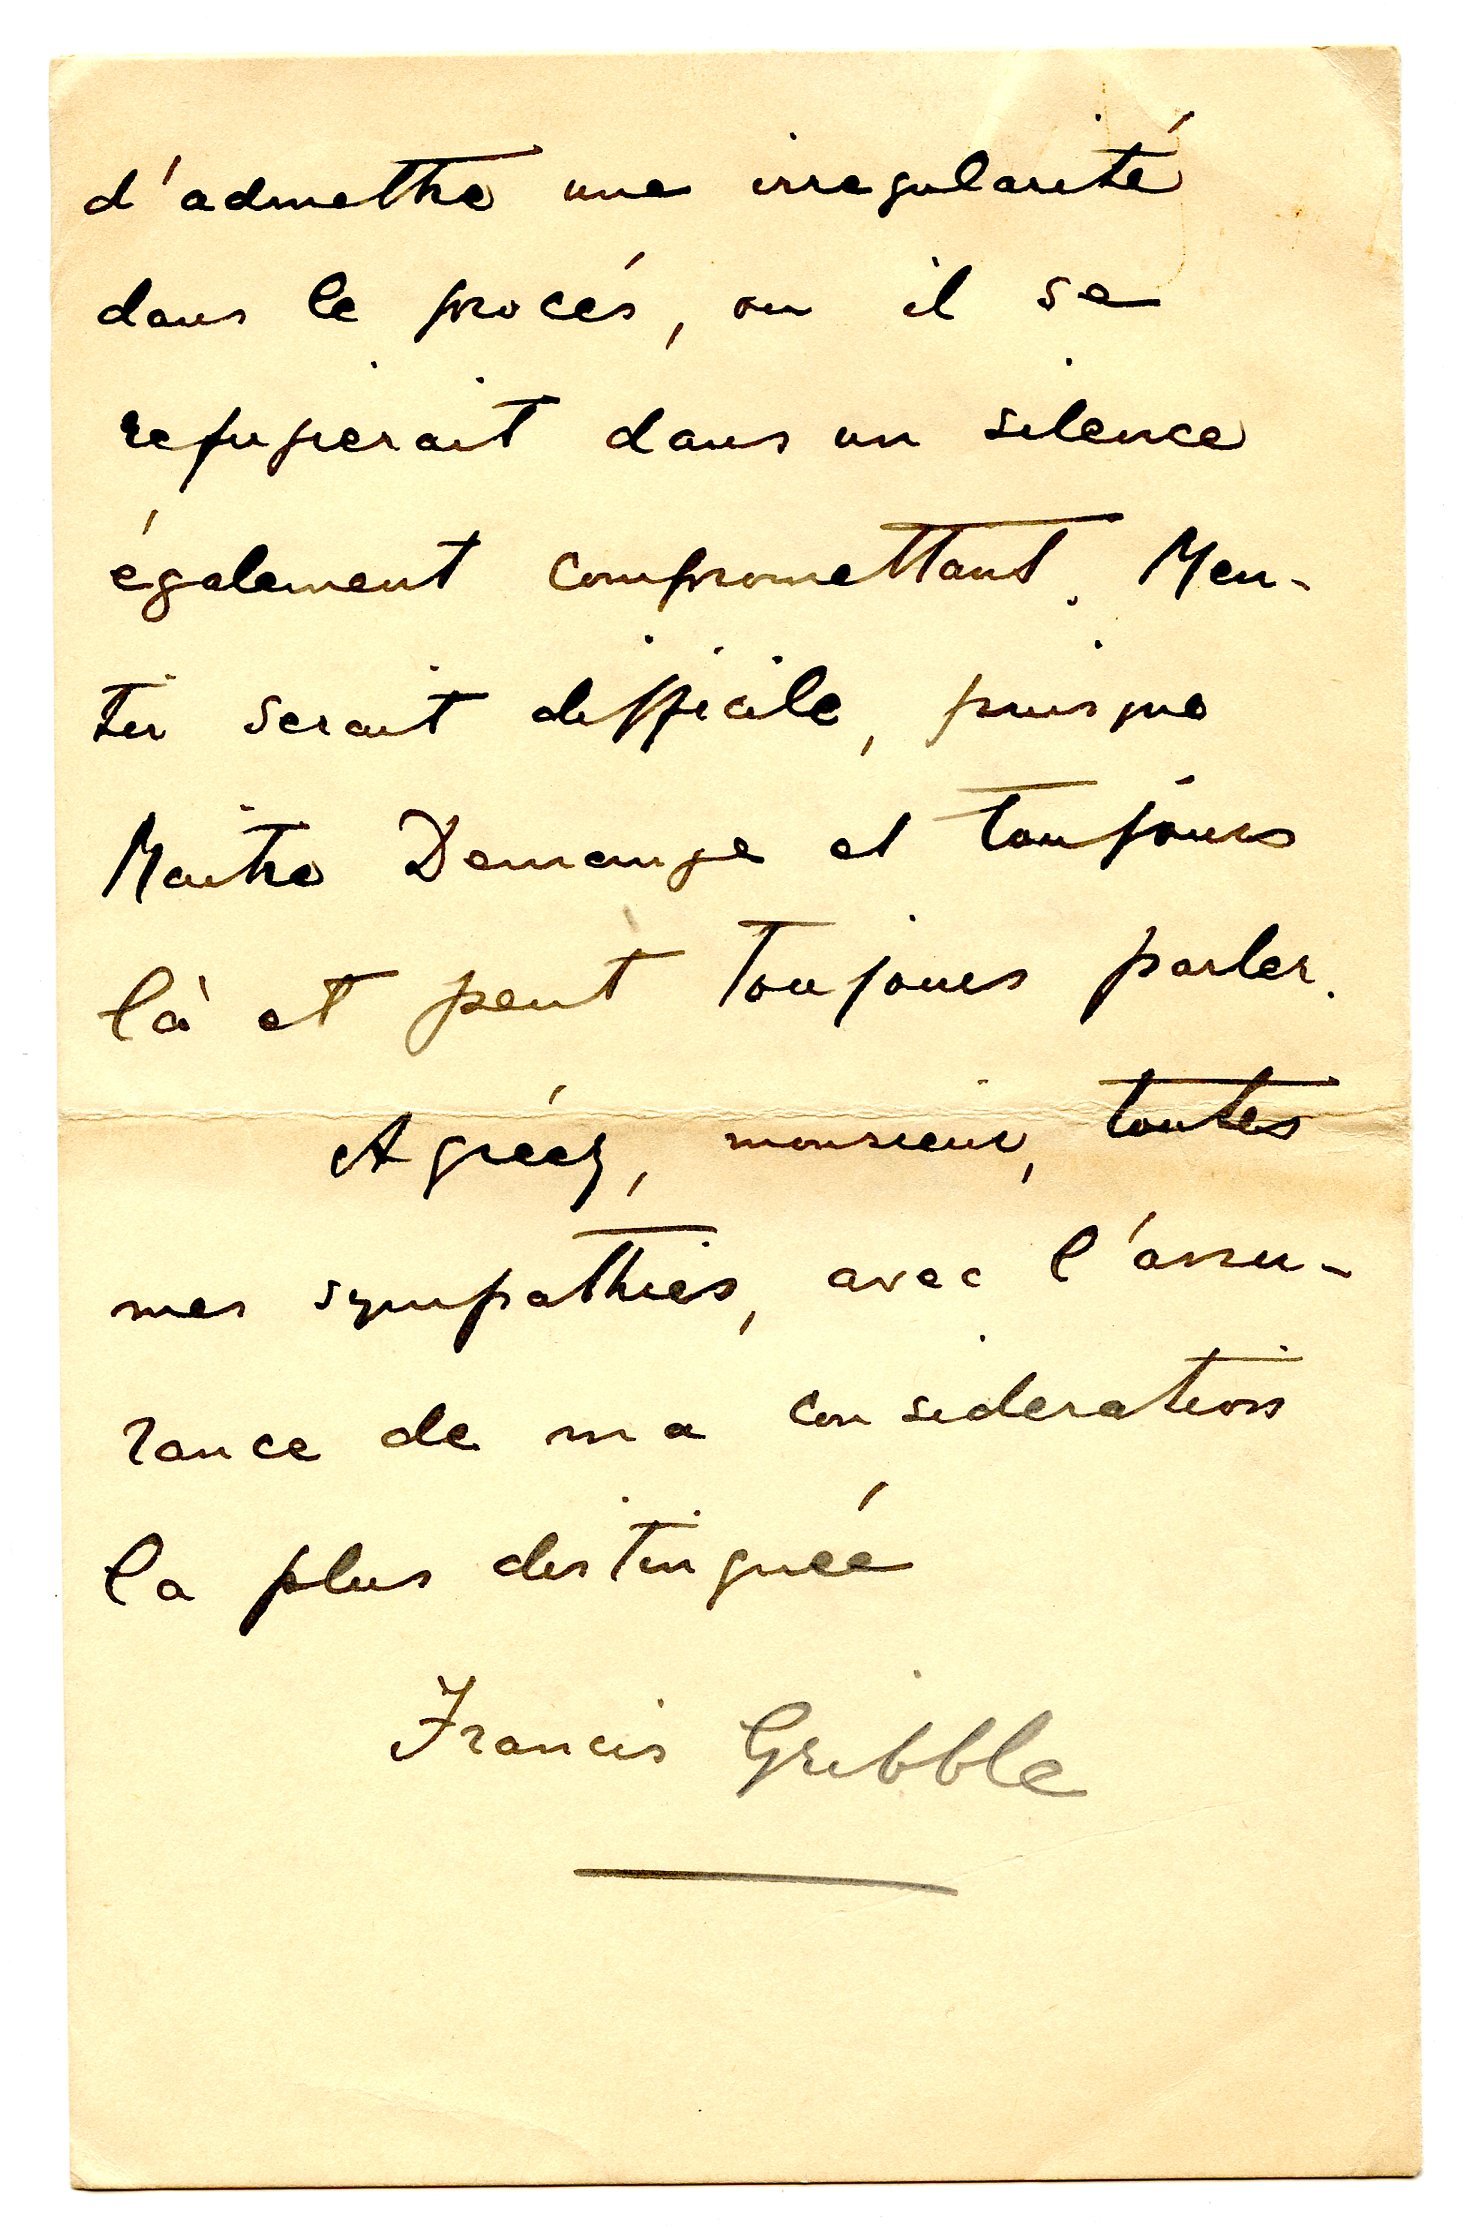 d'admettre une irregularité
dans le procés, ou il se
refugierait dans un silence
également compromettant. Men-
tir serait difficile, puisque
Maitre Demange et toujours
là et peut toujours parler.
Agréez, monsieur, toutes
mes sympathies, avec l'assu-
rance de ma consideration
la plus distinguée
Francis Gribble